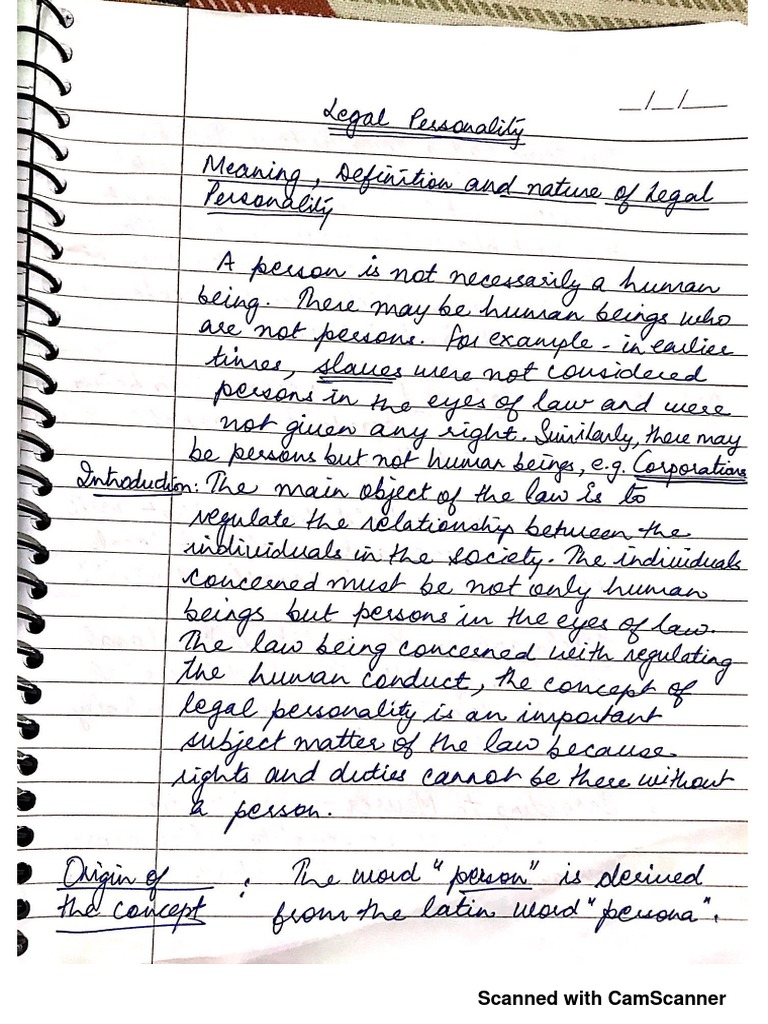 _/_/__
Legal Personality
Meaning, Definition and nature of Legal
Personality
A person is not necessarily a human
being. There may be human beings who
are not persons. For example - in earlier
times, slaves were not considered
persons in the eyes of law and were
not given any right. Similarly, there may
be persons but not human beings, e.g. Corporations
Introduction: The main object of the law is to
regulate the relationship between the
individuals in the society. The individuals
concerned must be not only human
beings but persons in the eyes of law.
The law being concerned with regulating
the human conduct, the concept of
legal personality is an important
subject matter of the law because
rights and duties cannot be there without
a person.
Origin of : The word "person" is derived
the concept from the latin word "persona".
Scanned with CamScanner